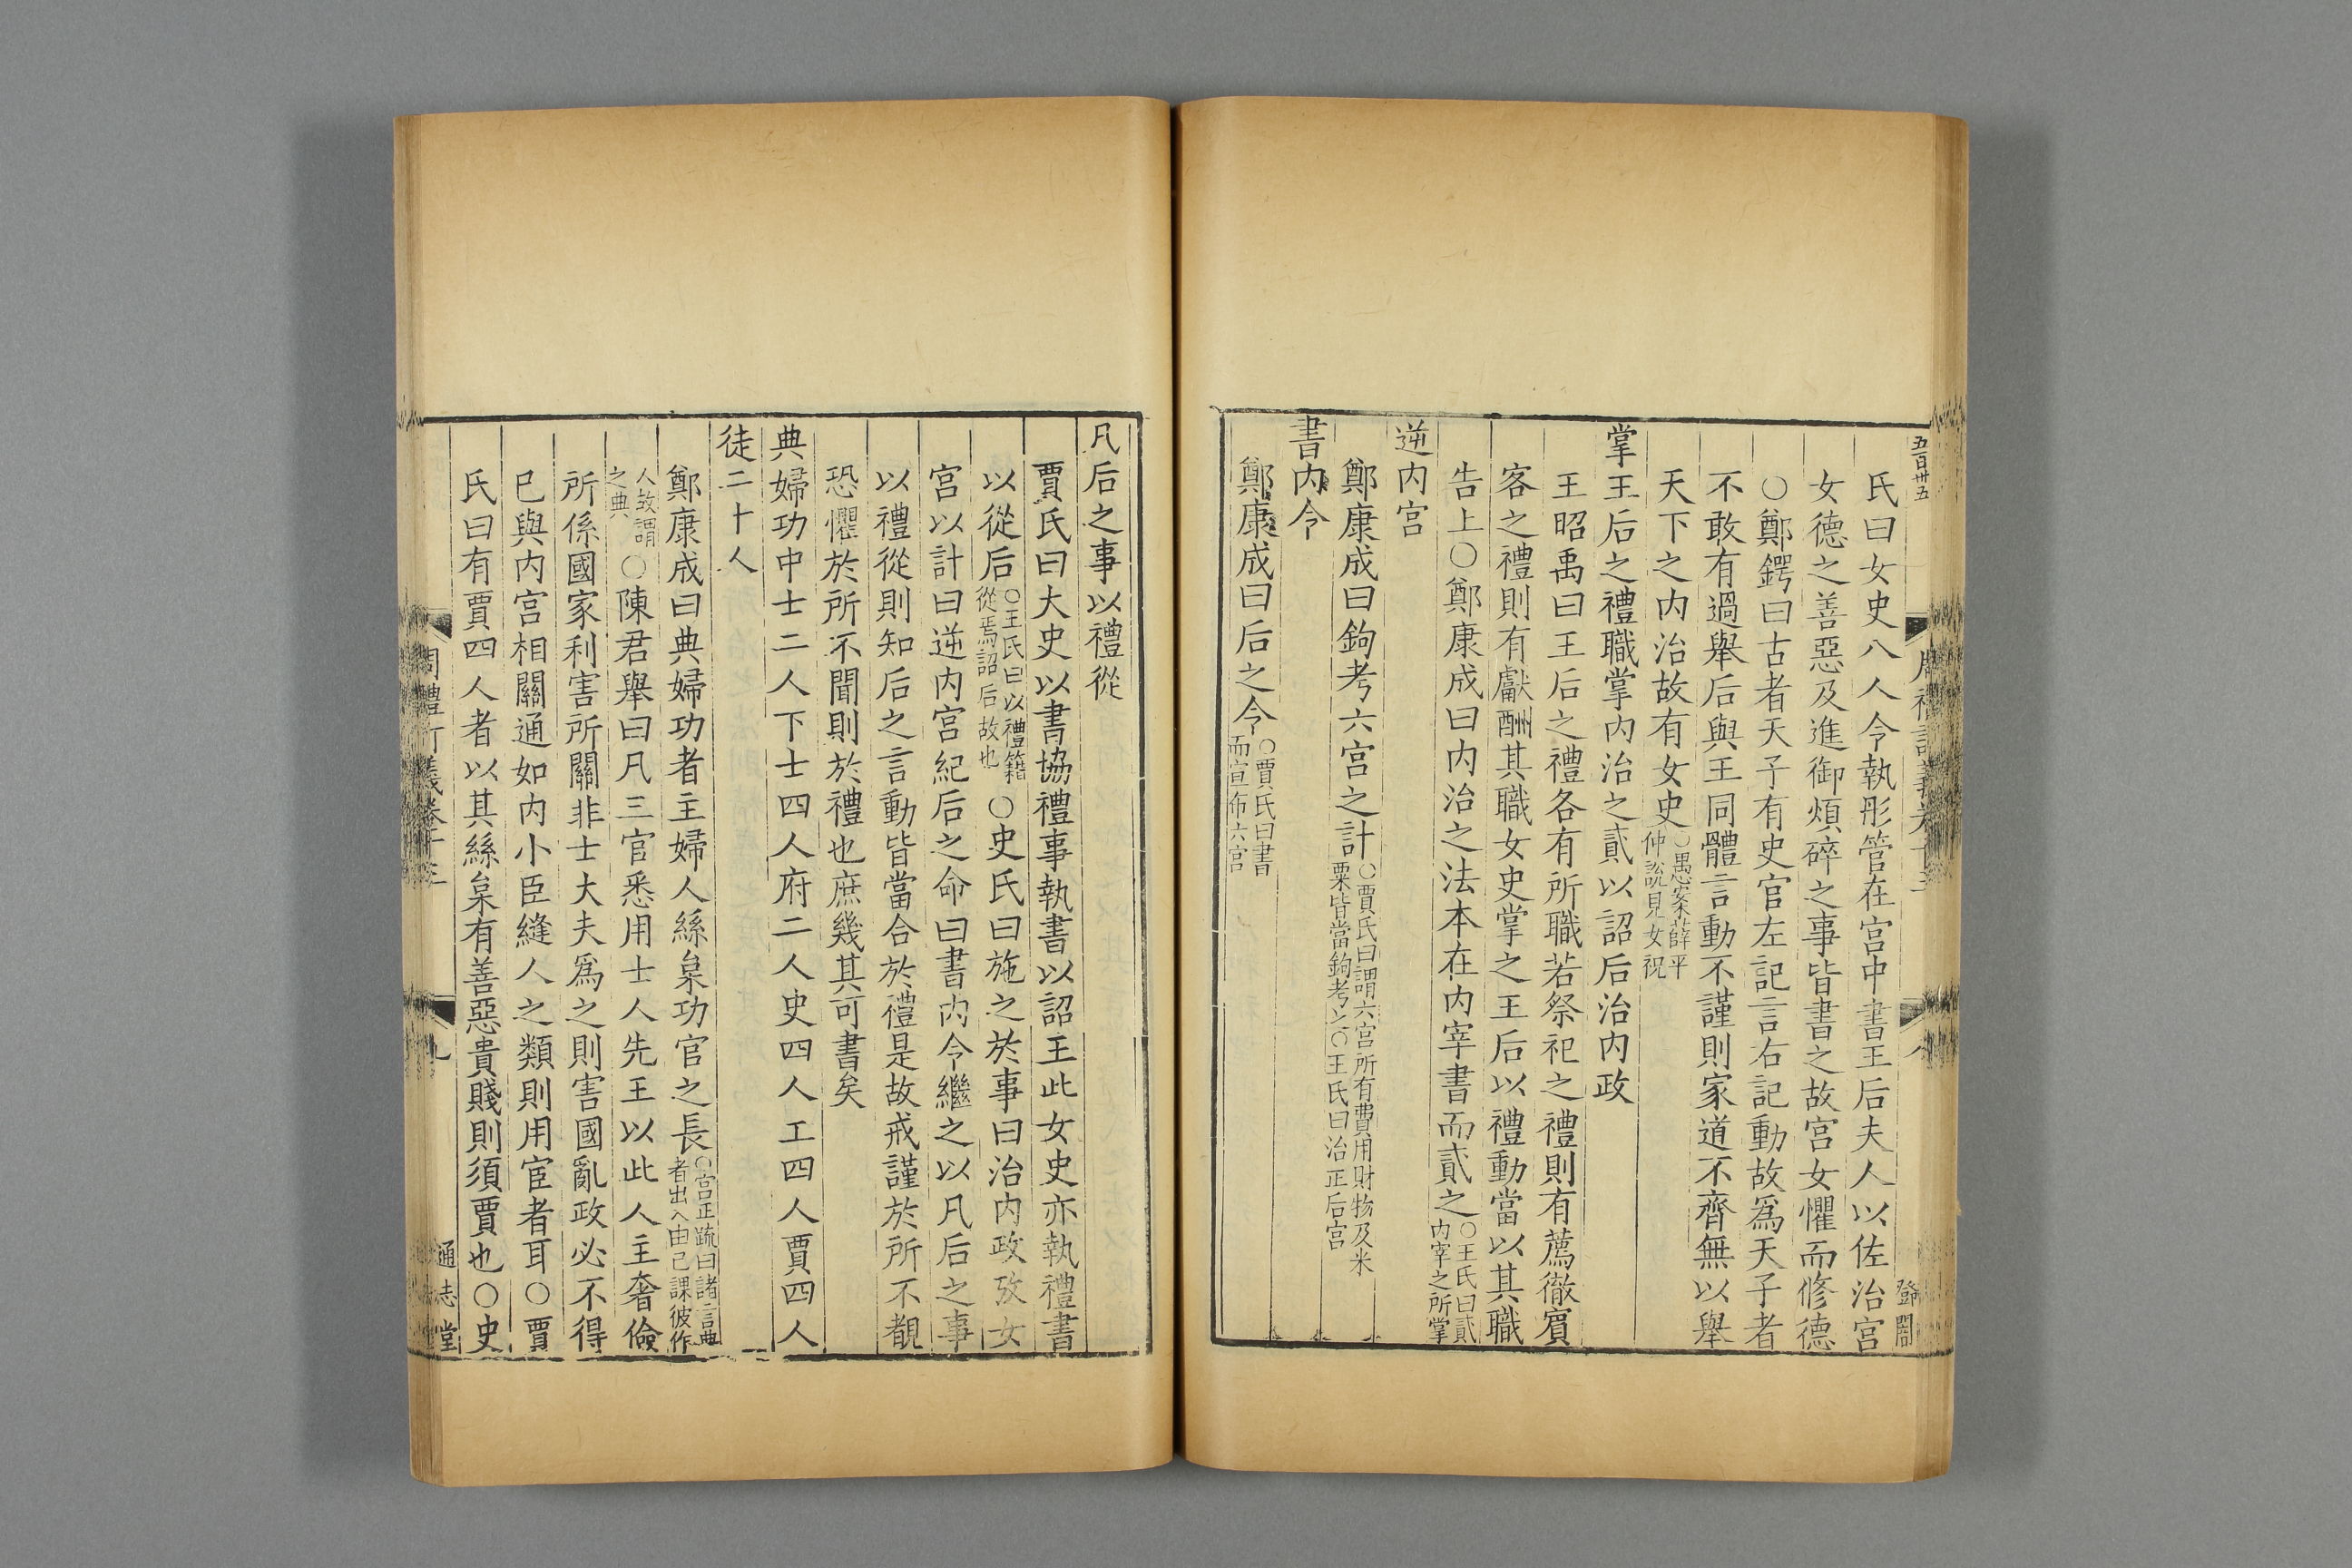 五百卅五
氏曰女史八人令執彤管在宫中書王后夫人以佐治宫
女德之善惡及進御煩碎之事皆書之故宫女懼而修德
○鄭鍔曰古者天子有史官左記言右記動故爲天子者
不敢有過舉后與王同體言動不謹則家道不齊無以舉
天下之内治故有女史○愚案薛平仲說見女祝
掌王后之禮職掌内治之貳以詔后治内政
王昭禹曰王后之禮各有所職若祭祀之禮則有薦徹賔
客之禮則有獻酬其職女史掌之王后以禮動當以其職
告上○鄭康成曰内治之法本在内宰書而貳之○王氏曰貳内宰之所掌
逆内宫
鄭康成曰鉤考六宫之計○賈氏曰謂六宫所有費用財物及米粟皆當鉤考之○王氏曰治正后宫
書内令
鄭康成曰后之令○賈氏曰書而宣布六宫
凡后之事以禮從
賈氏曰大史以書協禮事執書以詔王此女史亦執禮書
以從后○王氏曰以禮籍從焉詔后故也○史氏曰施之於事曰治内政攷女
宫以計曰逆内宫紀后之命曰書内令繼之以凡后之事
以禮從則知后之言動皆當合於禮是故戒謹於所不覩
恐懼於所不聞則於禮也庶幾其可書矣
典婦功中士二人下士四人府二人史四人工四人賈四人
徒二十人
鄭康成曰典婦功者主婦人絲枲功官之長○宫正疏曰諸言典者出入由己課彼作
人故謂之典○陳君舉曰凡三官悉用士人先王以此人主奢儉
所係國家利害所關非士大夫爲之則害國亂政必不得
已與内宫相關通如内小臣縫人之類則用宦者耳○賈
氏曰有賈四人者以其絲枲有善惡貴賤則須賈也○史
九
通志堂